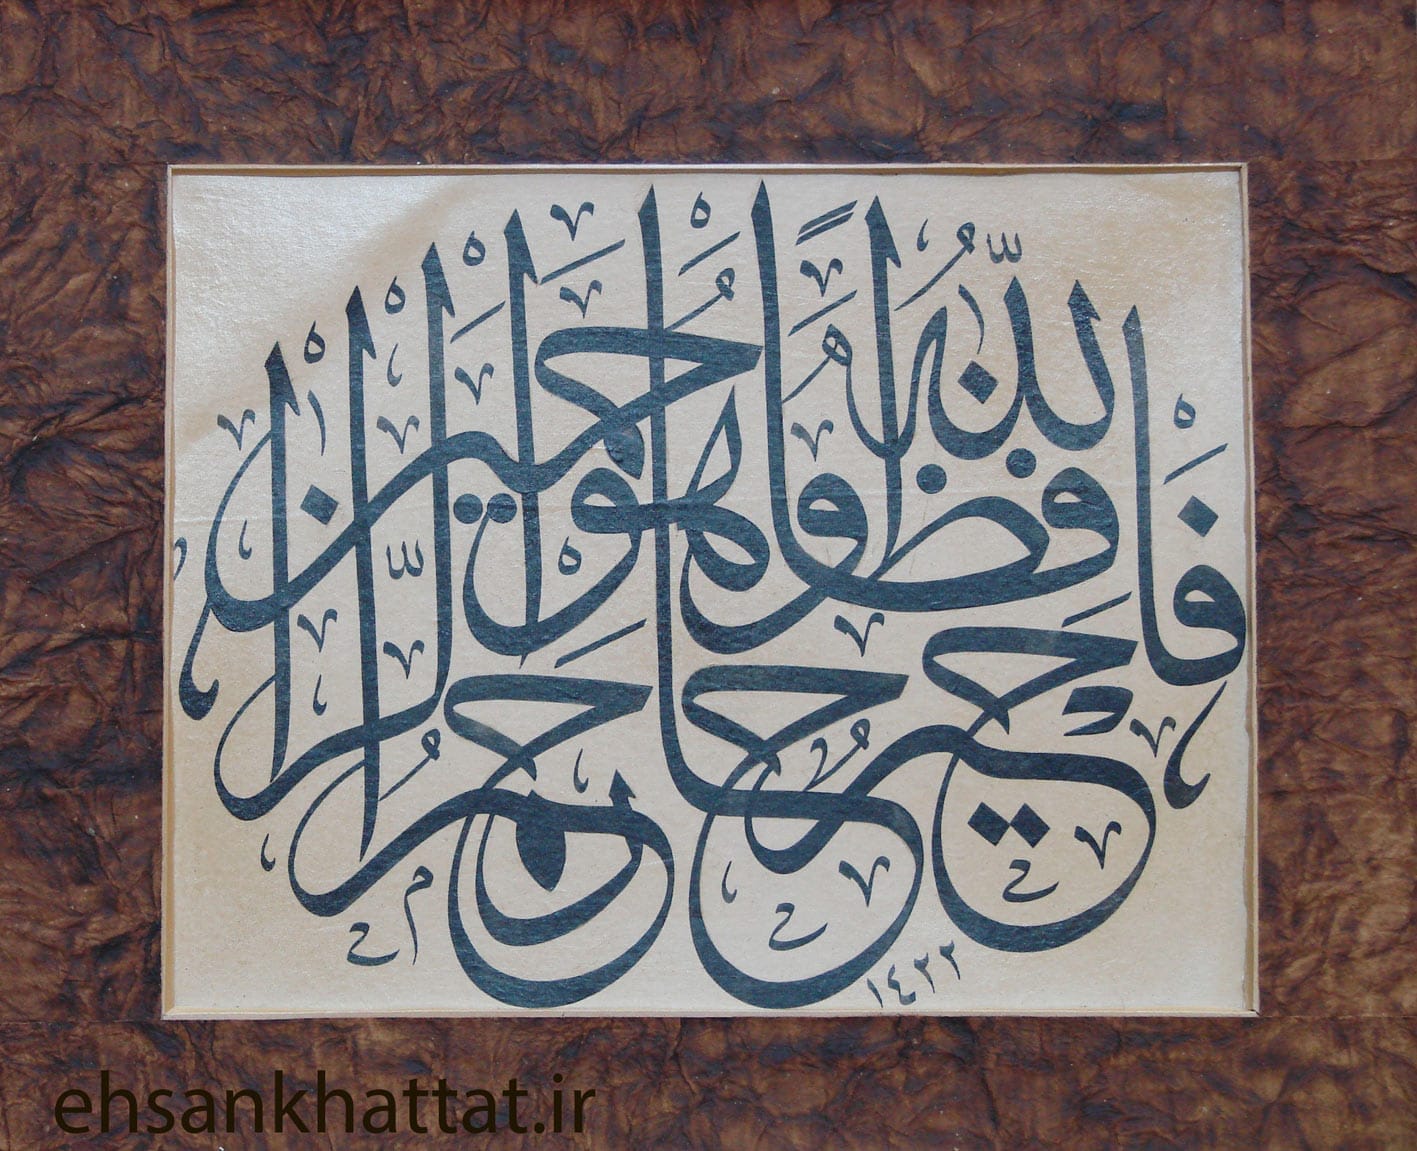 فَاللَّهُ خَيْرٌ حَافِظًا وَهُوَ أَرْحَمُ الرَّاحِمِينَ
١٤٢٢
ehsankhattat.ir